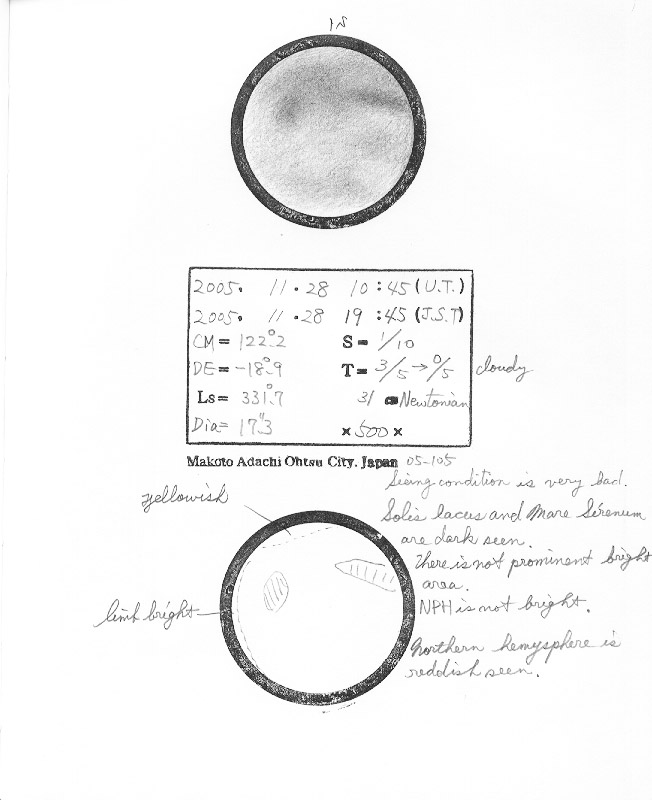 2005. 11.28 10:45 (U.T.)
2005. 11.28 19:45 (J.S.T)
CM= 122°.2 S= 1/10
DE= -18°.9 T= 3/5→0/5 cloudy
Ls= 331°.7 31 Newtonian
Dia= 17".3 ×500×
Makoto Adachi Ohtsu City. Japan 05-105
Seeing condition is very bad.
yellowish
Solis lacus and Mare Sirenum
are dark seen.
There is not prominent bright
area.
limb bright
NPH is not bright.
Northern hemysphere is
reddish seen.